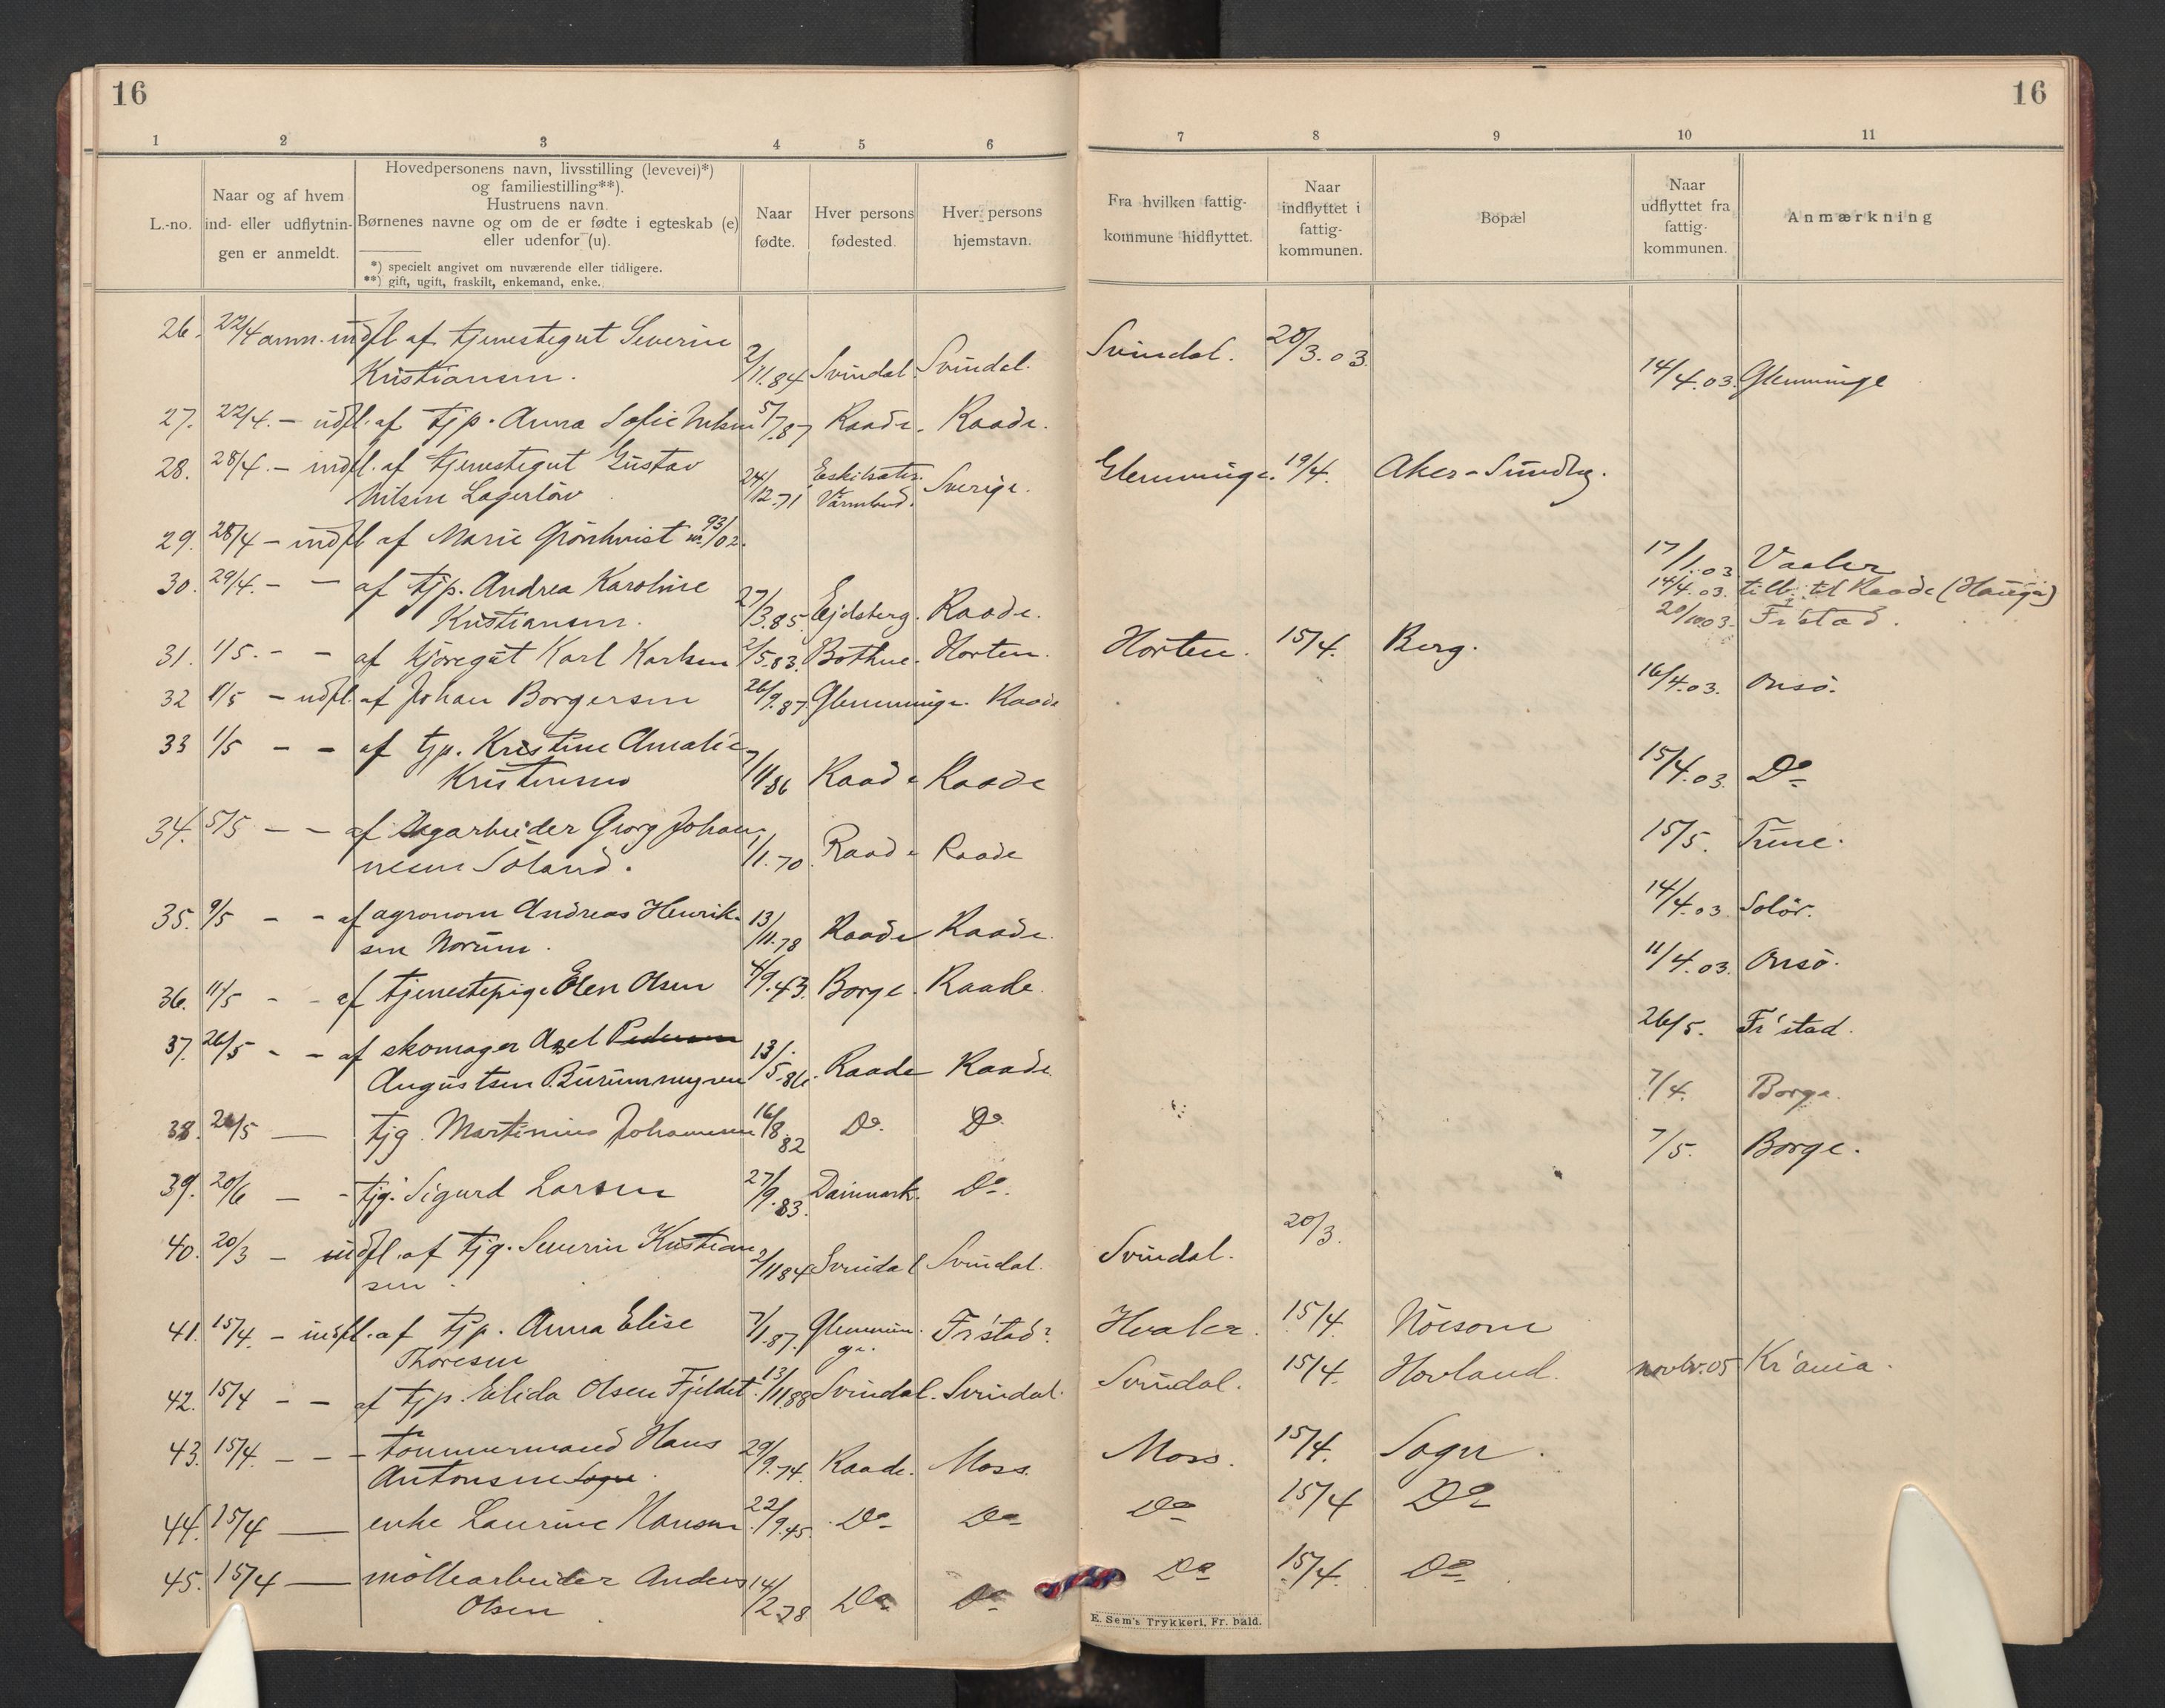 16
16
1 2 3 4 5 6 7 8 9 10 11
L.-no.
Naar og af hvem
ind- eller udflytnin-
gen er anmeldt.
Hovedpersonens navn, livsstilling (levevei)*)
og familiestilling**).
Hustruens navn.
Børnenes navne og om de er fødte i egteskab (e)
eller udenfor (u).
*) specielt angivet om nuværende eller tidligere.
**) gift, ugift, fraskilt, enkemand, enke.
Naar
fødte.
Hver persons
fødested.
Hver persons
hjemstavn.
Fra hvilken fattig-
kommune hidflyttet.
Naar
indflyttet i
fattig-
kommunen.
Bopæl
Naar
udflyttet fra
fattig-
kommunen.
Anmærkning
26. 22/4 anm. indfl af tjenestegut Severin
Kristiansen. 2/11.84 Svindal. Svindal. Svindal. 20/3.03.
14/4.03. Glemminge
27. 22/4. - udfl. af tjp. Anna Sofie Nilsen 5/7.87 Raade. Raade.
28. 28/4. - indfl. af tjenestegut Gustav
Nilsen Lagerlöv 24/12.71 Eskilsäter Värmland. Sverige. Glemminge. 19/4. Aker-Sundby.
29. 28/4 - indfl af Marie Grönhvist nr. 93/02.
17/1.03 Vaaler
14/4.03. tilb. til Raade (Hauge)
20/10.03. Fr'stad.
30. 29/4. - - af tjp. Andrea Karoline
Kristiansen. 27/3.85. Ejdsberg. Raade.
31. 1/5. - - af kjøregut Karl Karlsen 2/5.83. Bothne. Horten. Horten. 15/4. Berg.
32 1/5 - udfl. af Johan Borgersen 26/9.87. Glemminge. Raade
16/4.03. Onsö.
33 1/5 - - af tjp. Kristine Amalie
Kristensen 7/11.86 Raade Raade
15/4.03. Do
34. 5/5 - - af Dagarbeider Georg Johan-
nesen Söland. 1/1.70. Raade Raade
15/5. Tune.
35. 9/5 - - af agronom Andreas Henrik-
sen Norum. 13/11.78 Raade Raade.
14/4.03 Solör.
36. 11/5 - - af tjenestepige Elen Olsen 4/9.43. Borge. Raade.
11/4.03. Onsö.
37. 26/5 - - af skomager Axel Pedersen
Augustsen Burummyren 13/5.86. Raade Raade
26/5. Fr'stad.
38. 26/5 — tjg. Martinius Johannesen 16/8.82 Do. Do.
7/4. Borge.
39. 20/6 - - tjg. Sigurd Larsen 27/9.83. Dainmark. Do.
7/5. Borge.
40. 20/3 - indfl. af tjg. Severin Kristian
sen. 2/11 84 Svindal Svindal. Svindal. 20/3.
41. 15/4. - indfl. af tjp. Anna Elise
Thoresen 7/1.87. Glemmin. ge. Fr'stad? Hvaler. 15/4. Nöisom
42. 15/4 - - af tjp. Elida Olsen Fjeldet 13/11.88 Svindal. Svindal. Svindal. 15/4. Hovland. novbr. 05 Kr'ania.
43. 15/4. - - - tömmermand Hans
Antonsen Sogn. 29/9.74. Raade. Moss. Moss. 15/4. Sogn.
44. 15/4 — enke Laurine Hansen 22/9.45. Do Do Do 15/4 Do
45. 15/4 — möllearbeider Anders
Olsen 14/2.78 Do Do Do 15/4. Do
E. Sem's Trykkeri, Fr. hald.